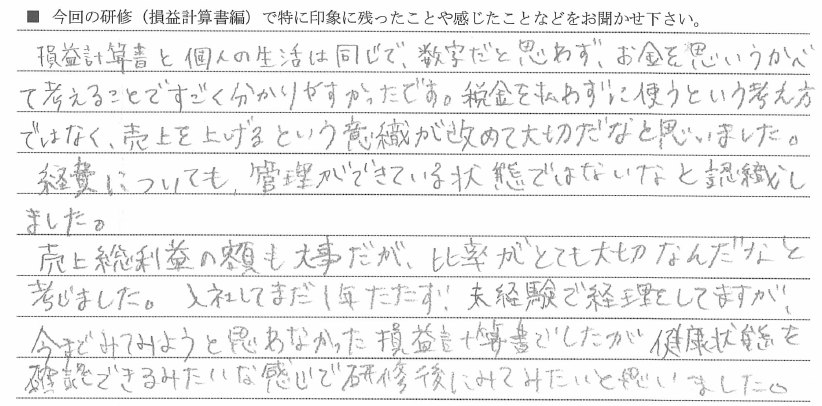 ■ 今回の研修（損益計算書編）で特に印象に残ったことや感じたことなどをお聞かせ下さい。
損益計算書と個人の生活は同じで、数字だと思わず、お金を思いうかべ
て考えることですごく分かりやすかったです。税金を払わずに使うという考え方
ではなく、売上を上げるという意織が改めて大切だなと思いました。
経費についても、管理ができている状態ではないなと認織し
ました。
売上総利益の額も大事だが、比率がとても大切なんだなと
考じました。入社してまだ1年たたず、未経験で経理をしてますが、
今までみてみようと思わなかった損益計算書でしたが健康状態を
確認できるみたいな感じで研修後にみてみたいと思いました。